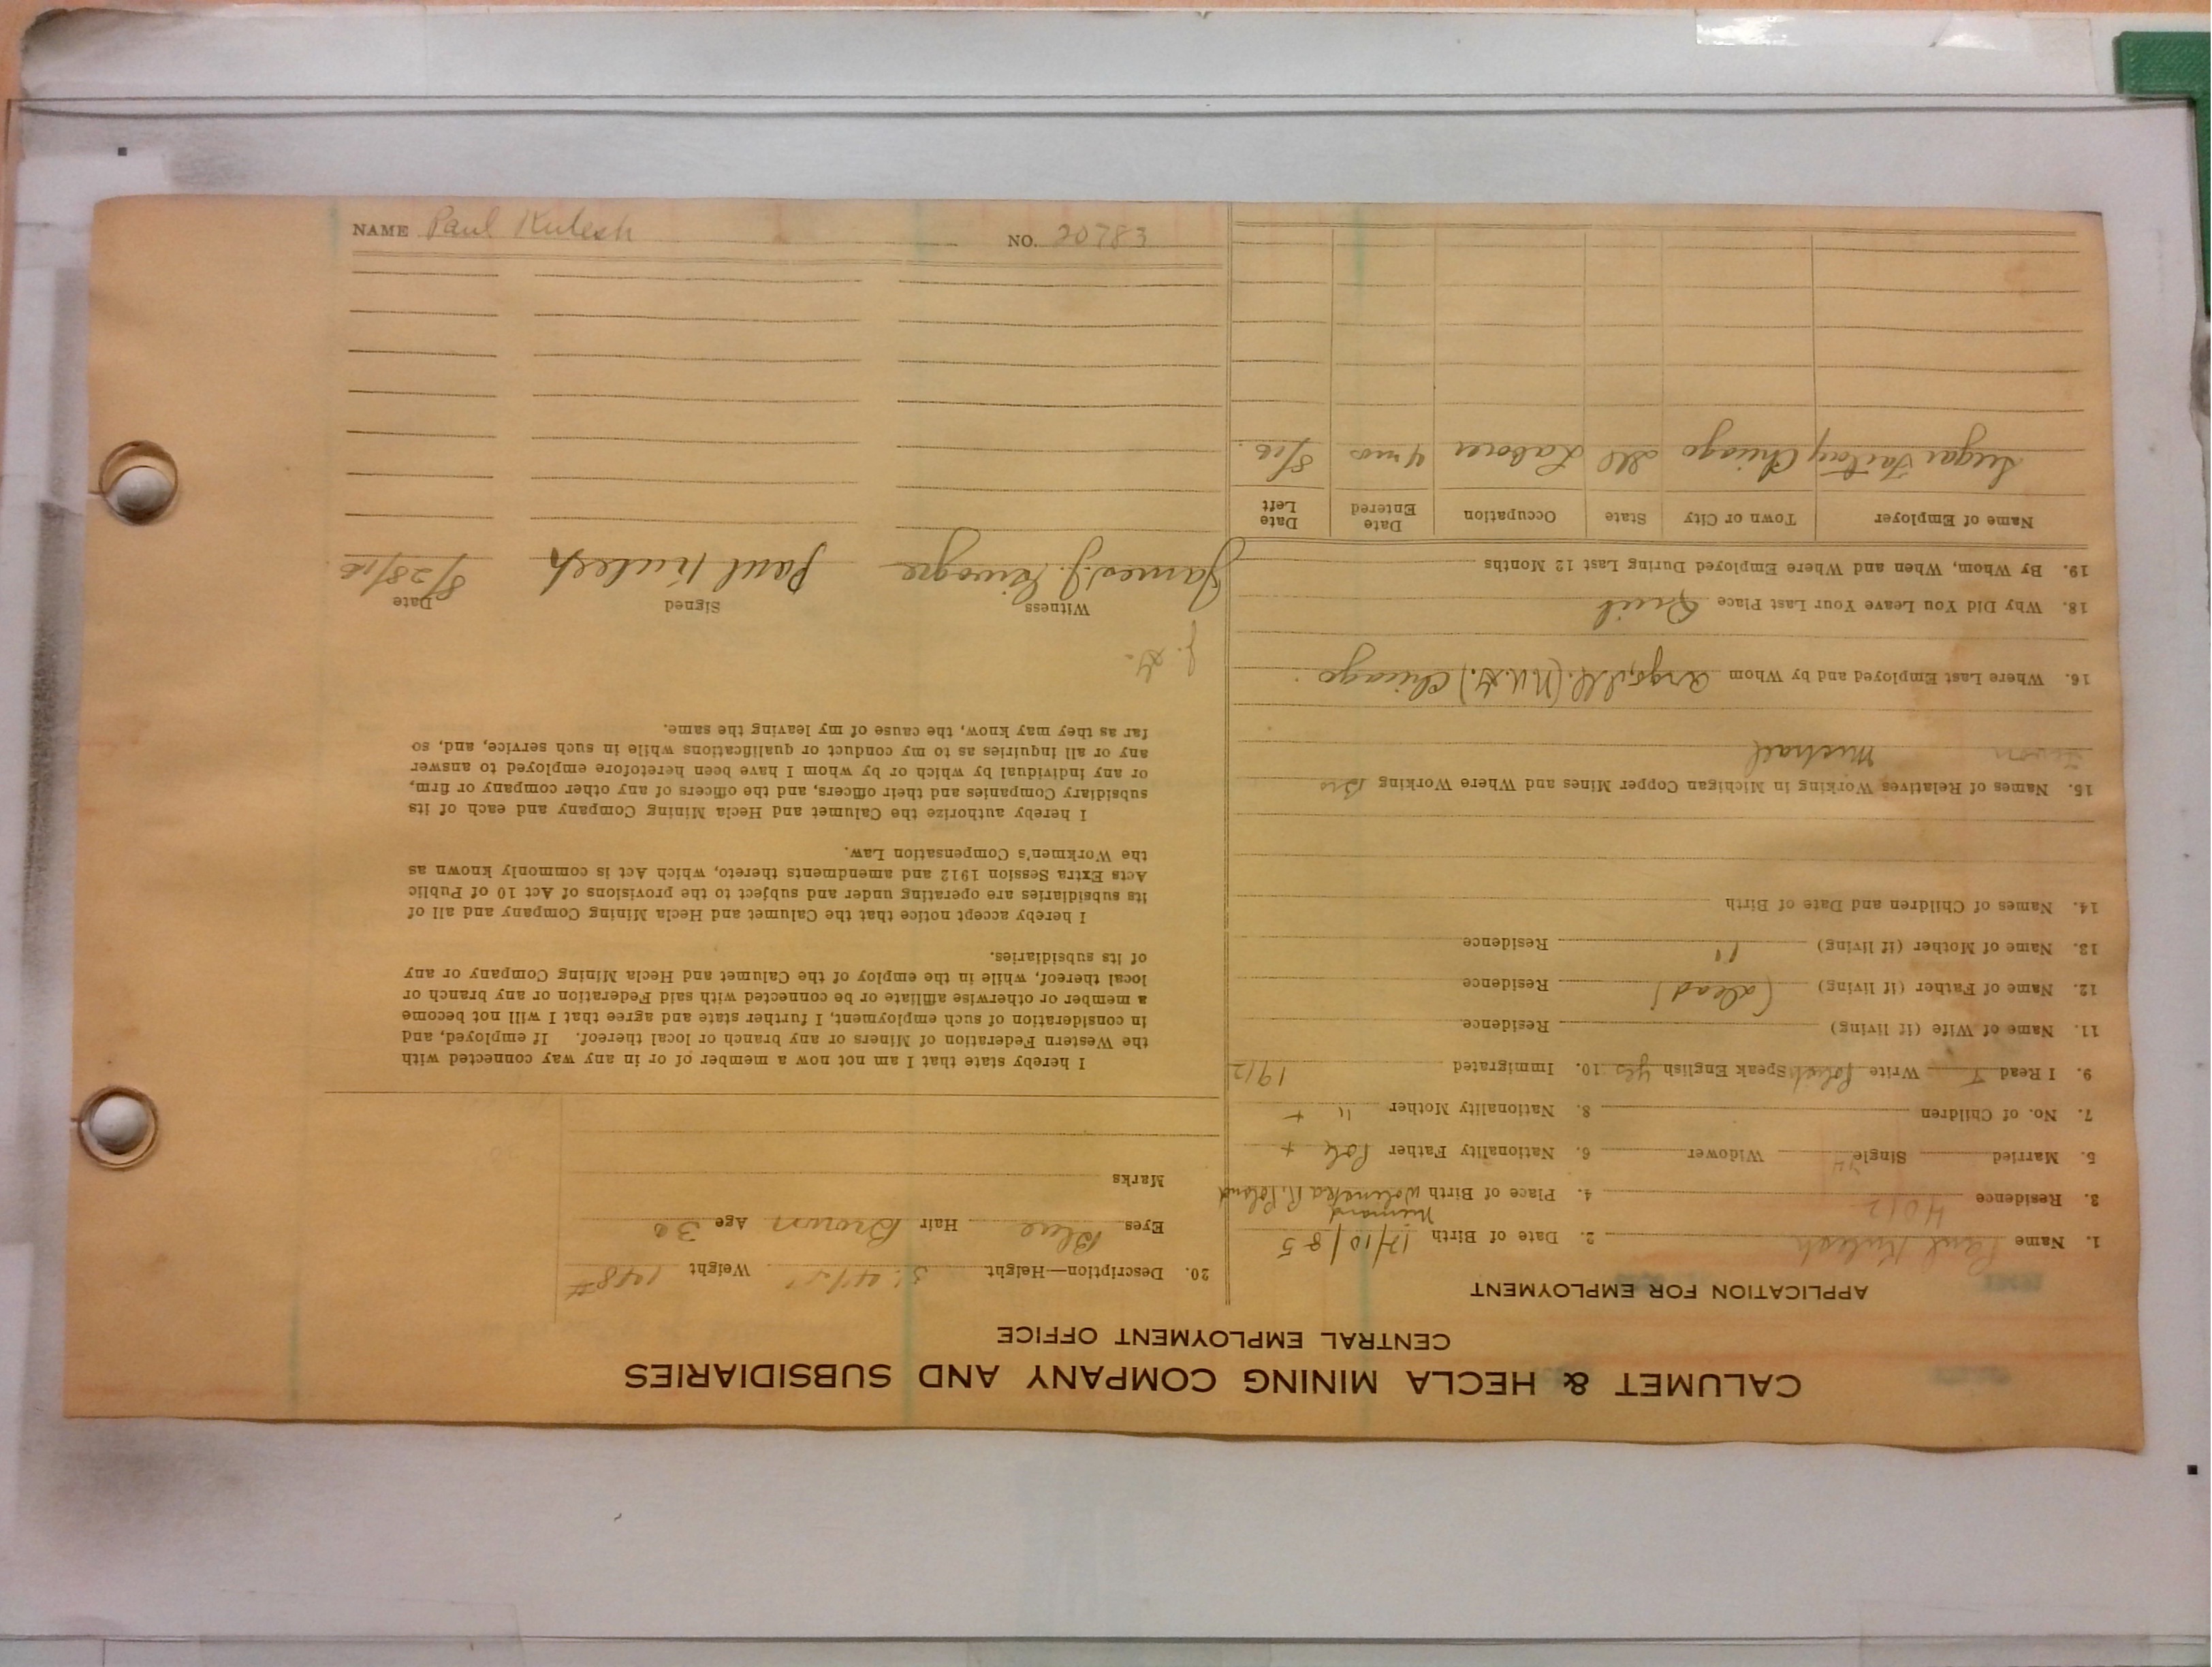 CALUMET & HECLA MINING COMPANY AND SUBSIDIARIES
CENTRAL EMPLOYMENT OFFICE
APPLICATION FOR EMPLOYMENT
1. Name Paul Kulesh 2. Date of Birth 12/10/85
3. Residence 4012 4. Place of Birth R. Poland
5. Married Single Widower 6. Nationality Father Pole +
7. No. of Children 8. Nationality Mother " +
9. I Read Write Polish Speak English yes 10. Immigrated 1912
11. Name of Wife (if living) Residence
12. Name of Father (if living) (dead) Residence
13. Name of Mother (if living) " Residence
14. Names of Children and Date of Birth
15. Names of Relatives Working in Michigan Copper Mines and Where Working Bro
Michael
16. Where Last Employed and by Whom Argo, Ill. Chicago
18. Why Did You Leave Your Last Place Quit
19. By Whom, When and Where Employed During Last 12 Months
Name of Employer Town or City State Occupation Date Entered Date Left
Sugar Factory Chicago Ill Laborer 4 mos 8/16.
20. Description—Height Weight 148#
Eyes Blue Hair Brown Age 30
Marks
I hereby state that I am not now a member of or in any way connected with
the Western Federation of Miners or any branch or local thereof. If employed, and
in consideration of such employment, I further state and agree that I will not become
a member or otherwise affiliate or be connected with said Federation or any branch or
local thereof, while in the employ of the Calumet and Hecla Mining Company or any
of its subsidiaries.
I hereby accept notice that the Calumet and Hecla Mining Company and all of
its subsidiaries are operating under and subject to the provisions of Act 10 of Public
Acts Extra Session 1912 and amendments thereto, which Act is commonly known as
the Workmen's Compensation Law.
I hereby authorize the Calumet and Hecla Mining Company and each of its
subsidiary Companies and their officers, and the officers of any other company or firm,
or any individual by which or by whom I have been heretofore employed to answer
any or all inquiries as to my conduct or qualifications while in such service, and, so
far as they may know, the cause of my leaving the same.
Witness Signed Date
James J. Paul Kulesh 8/28/16
NAME Paul Kulesh NO. 20783